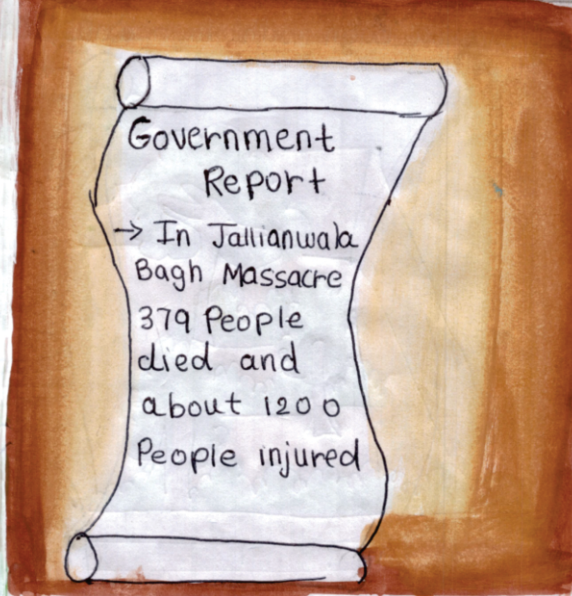 Government
Report
→ In Jallianwala
Bagh Massacre
379 People
died and
about 1200
People injured